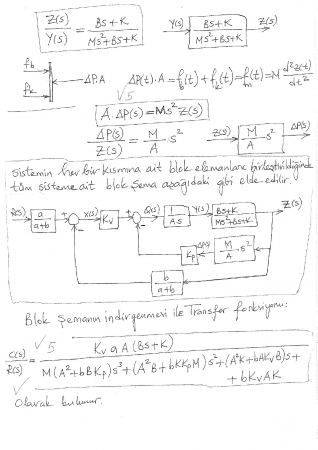 Z(s)/Y(s) = BS+K / MS²+BS+K   Y(s) → BS+K / MS²+BS+K → Z(s)
fb
fk
ΔP.A   ΔP(t).A = fb(t)+fk(t)=fm(t)=M d²z(t)/dt²
√5
A.ΔP(s)=Ms²Z(s)
ΔP(s)/Z(s) = M/A .s²   Z(s) → M/A .s² → ΔP(s)
Sistemin her bir kısmına ait blok elemanları birleştirildiğinde
tüm sisteme ait blok şema aşağıdaki gibi elde edilir.
R(s) a/a+b + - X(s) Kv + - Q(s) 1/AS Y(s) BS+K / MS²+BS+K Z(s)
Kp ΔP(s) M/A .s²
b/a+b
Blok Şemanın indirgenmesi ile Transfer fonksiyonu:
√5
C(s)/R(s) = Kv a A (BS+K) / M(A²+bBKp)s³+(A²B+bKKpM)s²+(A²K+bAKvB)s+
+bKvAK
Olarak bulunur.